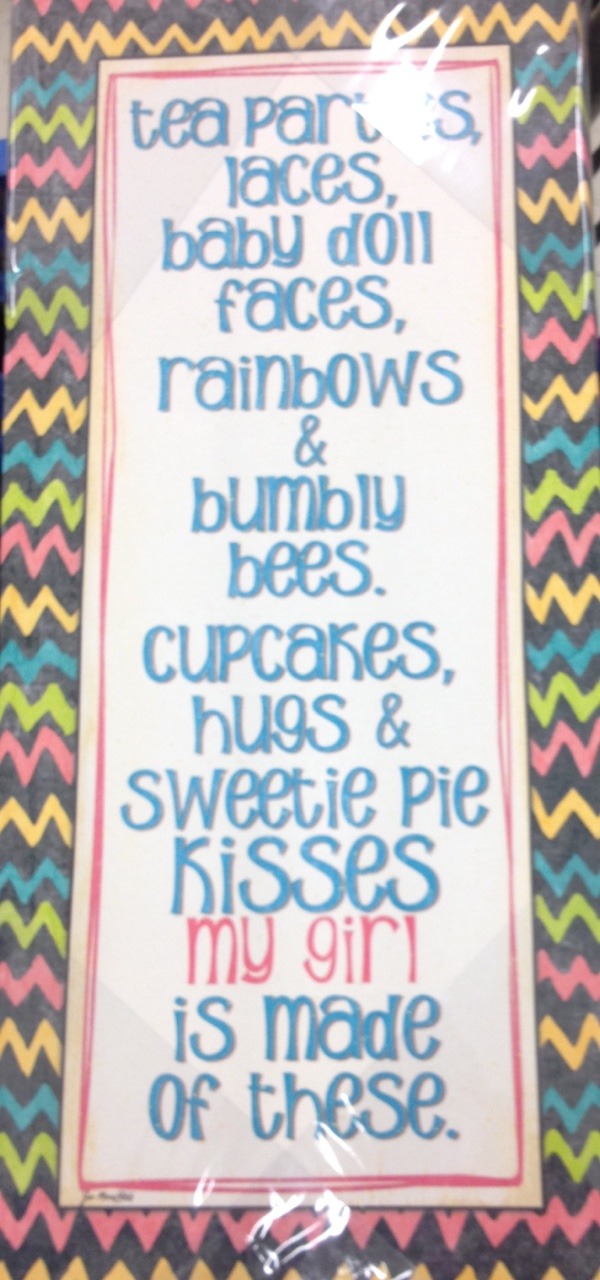 tea parties,
laces,
baby doll
faces,
rainbows
&
bumbly
bees.
cupcakes,
hugs &
sweetie pie
kisses
my girl
is made
of these.